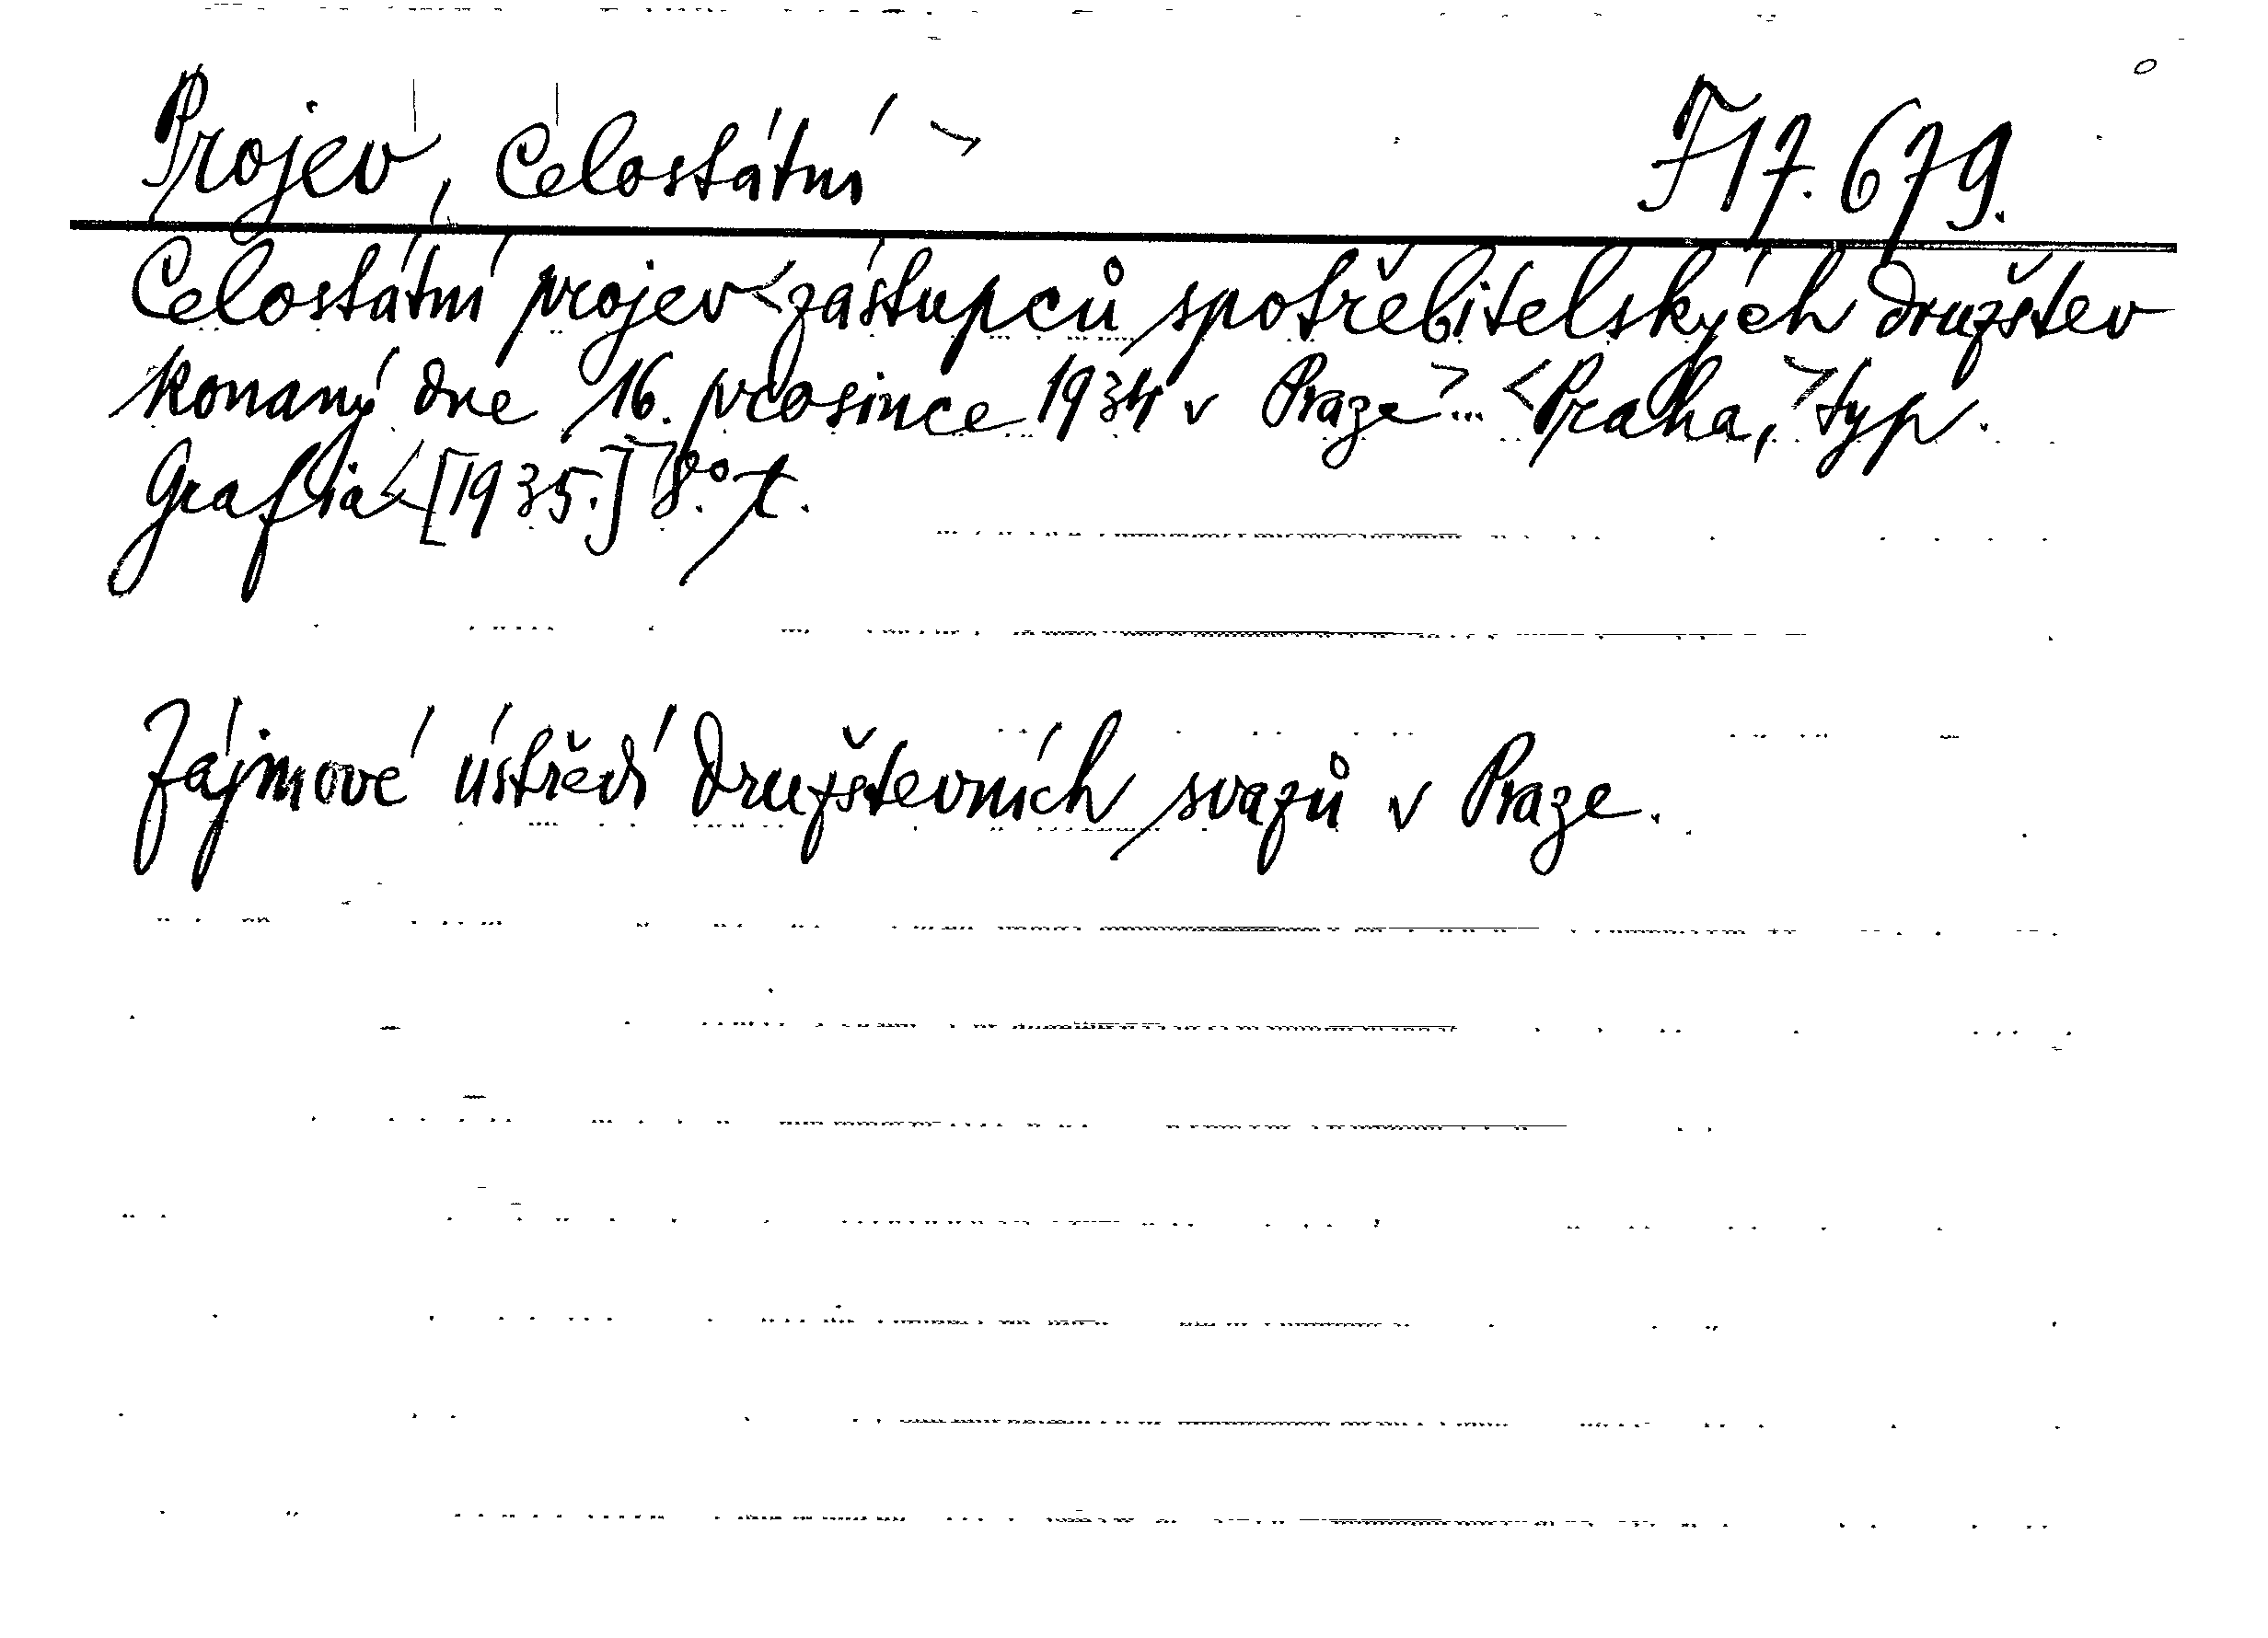 Projev, Celostátní > F 17.679.
Celostátní projev < zástupců spotřebitelských družstev
konaný dne 16. prosince 1934 v Praze > ... < Praha, > typ.
Grafia < [1935.] > 8° t.
Zájmové ústředí družstevních svazů v Praze.